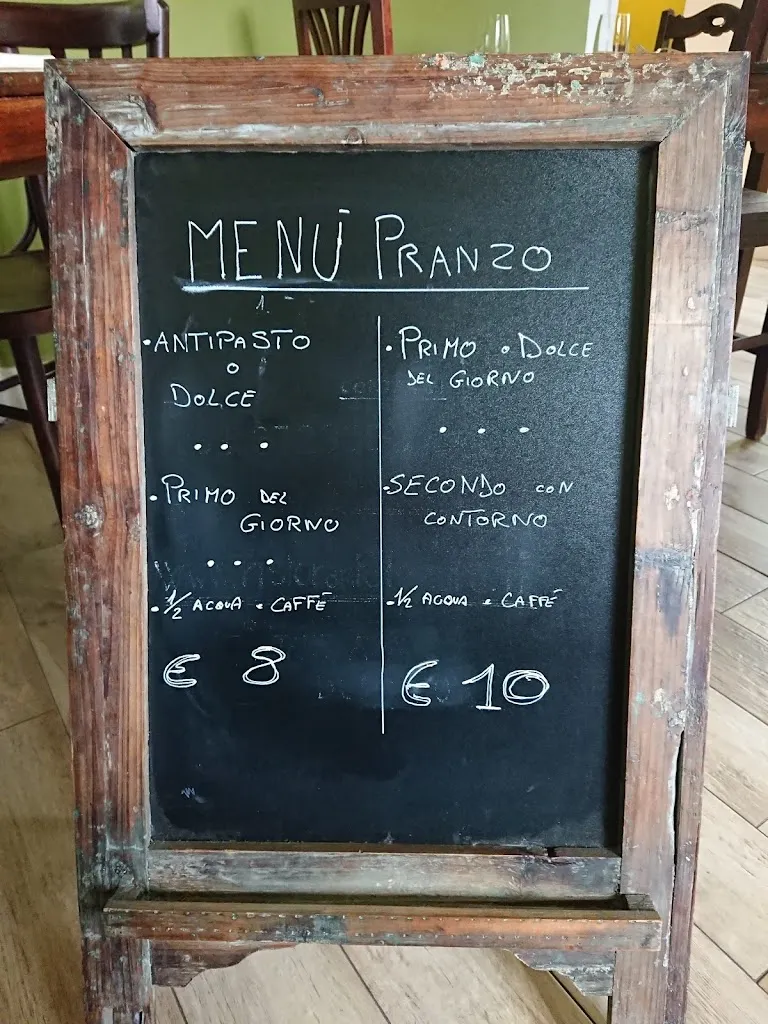 MENÙ PRANZO
• ANTIPASTO
O
DOLCE
• • •
• PRIMO DEL
GIORNO
• • •
• 1/2 ACQUA e CAFFÈ
€ 8
• PRIMO o DOLCE
DEL GIORNO
• • •
• SECONDO CON
CONTORNO
• 1/2 ACQUA e CAFFÉ
€ 10